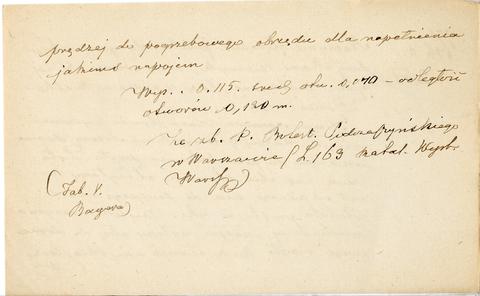 prędzej do pogrzebowego obrzędu dla napełnienia
jakimś napojem
Wys. 0.115. śred. otw. 0,170 – odległość
otworów 0,120 m.
Ze zb. P. Bolest. Podczaszyńskiego
w Warszawie (L. 163 katal. Wyst.
Warsz)
(Tab. V.